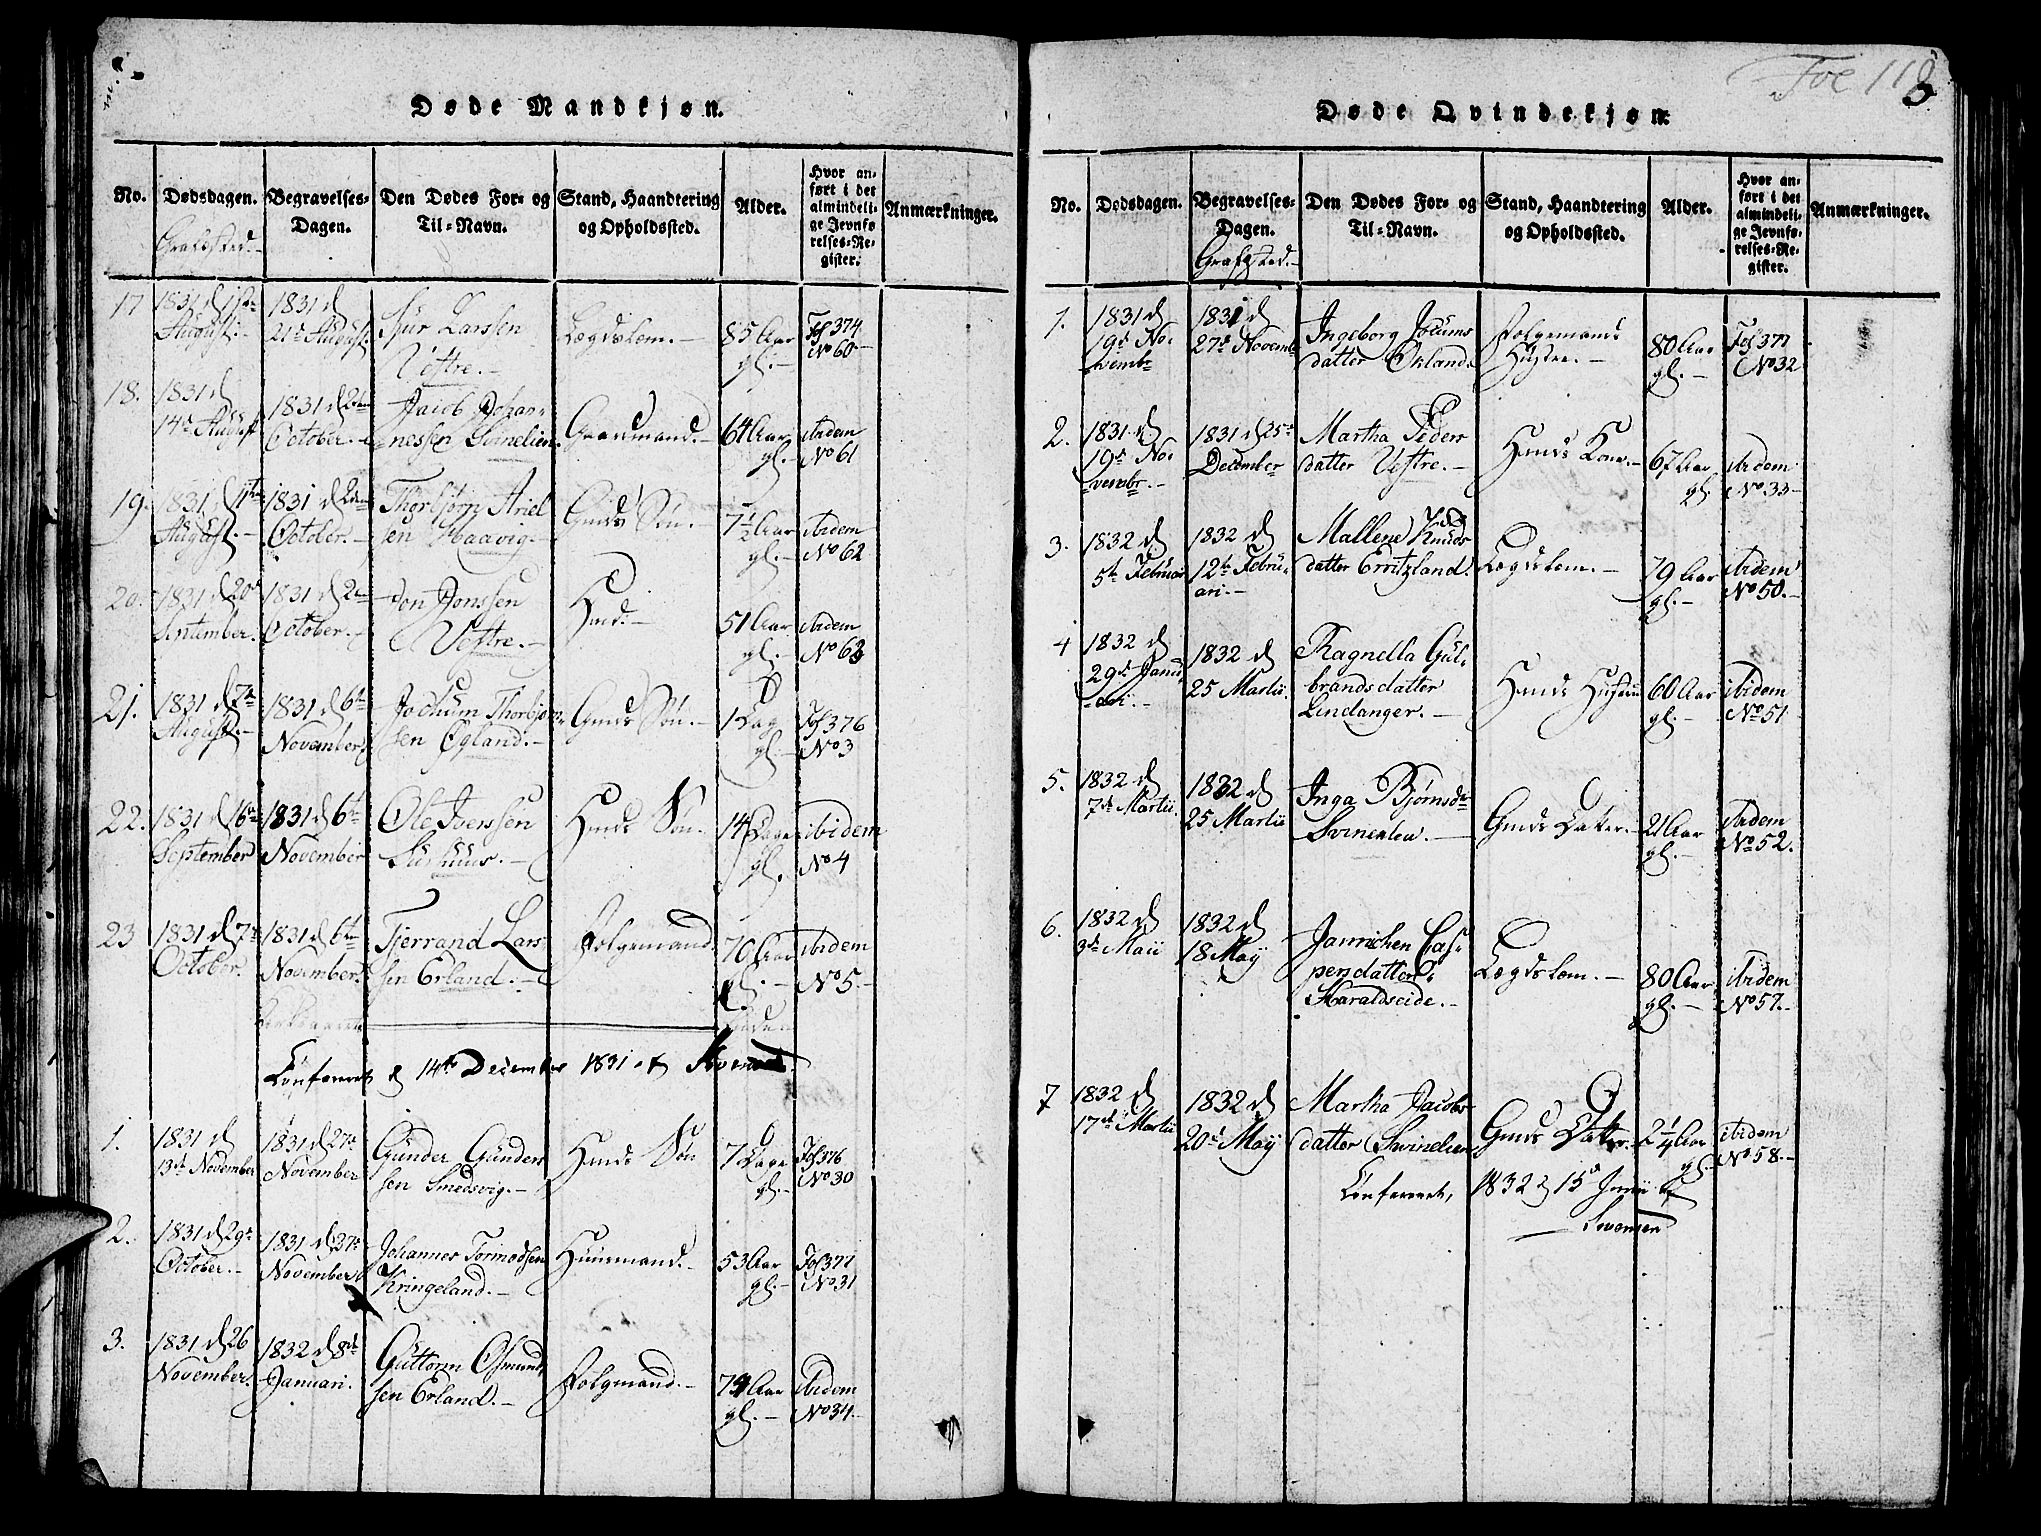 Døde Mandkjøn.
No.
Dødsdagen.
Begravelses-
Dagen.
Den Dødes For- og
Til-Navn.
Stand, Haandtering
og Opholdssted.
Alder.
Hvor an-
ført i det
almindeli-
ge Jevnfø-
relses-Re-
gister.
Anmærkninger.
17
1831 d
August.
1831 d
21de August
Larssen
Vestre.
Lægdslem.
85 Aar
gl.
Fol 374
No 60
18.
1831 d
14de August
1831 d 2den
October.
Jacob Johan-
nessen Svinelien.
Gaardmand.
64 Aar
gl.
ibidem
No 61
19.
1831 d
August.
1831 d 2den
October.
Thorbjørn Ariel
sen Haavig.
Gmds Søn.
7 1/2 Aar
gl.
ibidem
No 62
20.
1831 d 20de
September.
1831 d 2den
October.
Jon Jonssen
Vestre.
Hmd.
51 Aar
gl.
ibidem
No 63
21.
1831 d 7de
August.
1831 d 6te
November.
Jochum Thorbjørn-
sen Øgland.
Gmds Søn.
1 Dag
gl.
Fol 376
No 3
22.
1831 d 16de
September
1831 d 6te
November
Ole Iverssen
Hmds Søn.
14 Dage
gl.
ibidem
No 4
23
1831 d 7de
October.
1831 d 6te
November.
Tjerrand Lars-
sen Erland.
Folgemand.
70 Aar
gl.
ibidem
No 5.
Confereret d 14de December 1831 af
1.
1831 d
13de November
1831 d 27de
November
Gunder Gunder
sen Smedsvig.
Hmds Søn
7 Dage
gl.
Fol 376
No 30
2.
1831 d 29de
October.
1831 d 27de
November
Johannes Tormodsen
Kringeland.
Huusmand.
53 Aar
gl.
Fol 377
No 31
3.
1831 d 26
November.
1832 d 8de
Januari.
Guttorm Osmund
sen Erland.
Folgmand.
74 Aar
gl.
ibidem
No 34
118
Døde Qvindekjøn.
No.
Dødsdagen.
Begravelses-
Dagen.
Den Dødes For- og
Til-Navn.
Stand, Haandtering
og Opholdssted.
Alder.
Hvor an-
ført i det
almindeli-
ge Jevnfø-
relses-Re-
gister.
Anmærkninger.
1.
1831 d
19de No-
vembr
1831 d
27de Novembr
Ingeborg Jocums
datter Økland.
Folgemands
Hustrue.
80 Aar
gl.
Fol 377
No 32
2.
1831 d
19de No-
vembr.
1831 d 25de
December
Martha Peders
datter Vestre.
Hmds Kone.
67 Aar
gl.
ibidem
No 33
3.
1832 d
5te Februar
1832 d
12te Febru-
ari.
Mallene Knuds
datter Erritzland.
Lægdslem.
79 Aar
gl.
ibidem
No 50.
4
1832 d
29de Janu-
ari.
1832 d
25 Martii
Ragnella Gul-
brandsdatter
Lindanger.
Hmds Hustru
60 Aar
gl.
ibidem
No 51
5.
1832 d
7de Martii.
1832 d
25 Martii
Inga Bjørnsd.
Svinelien.
Gmds Datter.
21 Aar
gl.
ibidem
No 52.
6.
1832 d
3de Maii
1832 d
18 Maij
Jannichen Cas-
persdatter
Haraldseide.
Lægdslem.
80 Aar
gl.
ibidem
No 57.
7
1832 d
17de Martii
1832 d
20de Maij
Martha Jacobs-
datter Svinelien
Gmds Datter.
2 1/4 Aar
gl.
ibidem
No 58.
Confereret, 1832 d 15de Junii af
Svensen